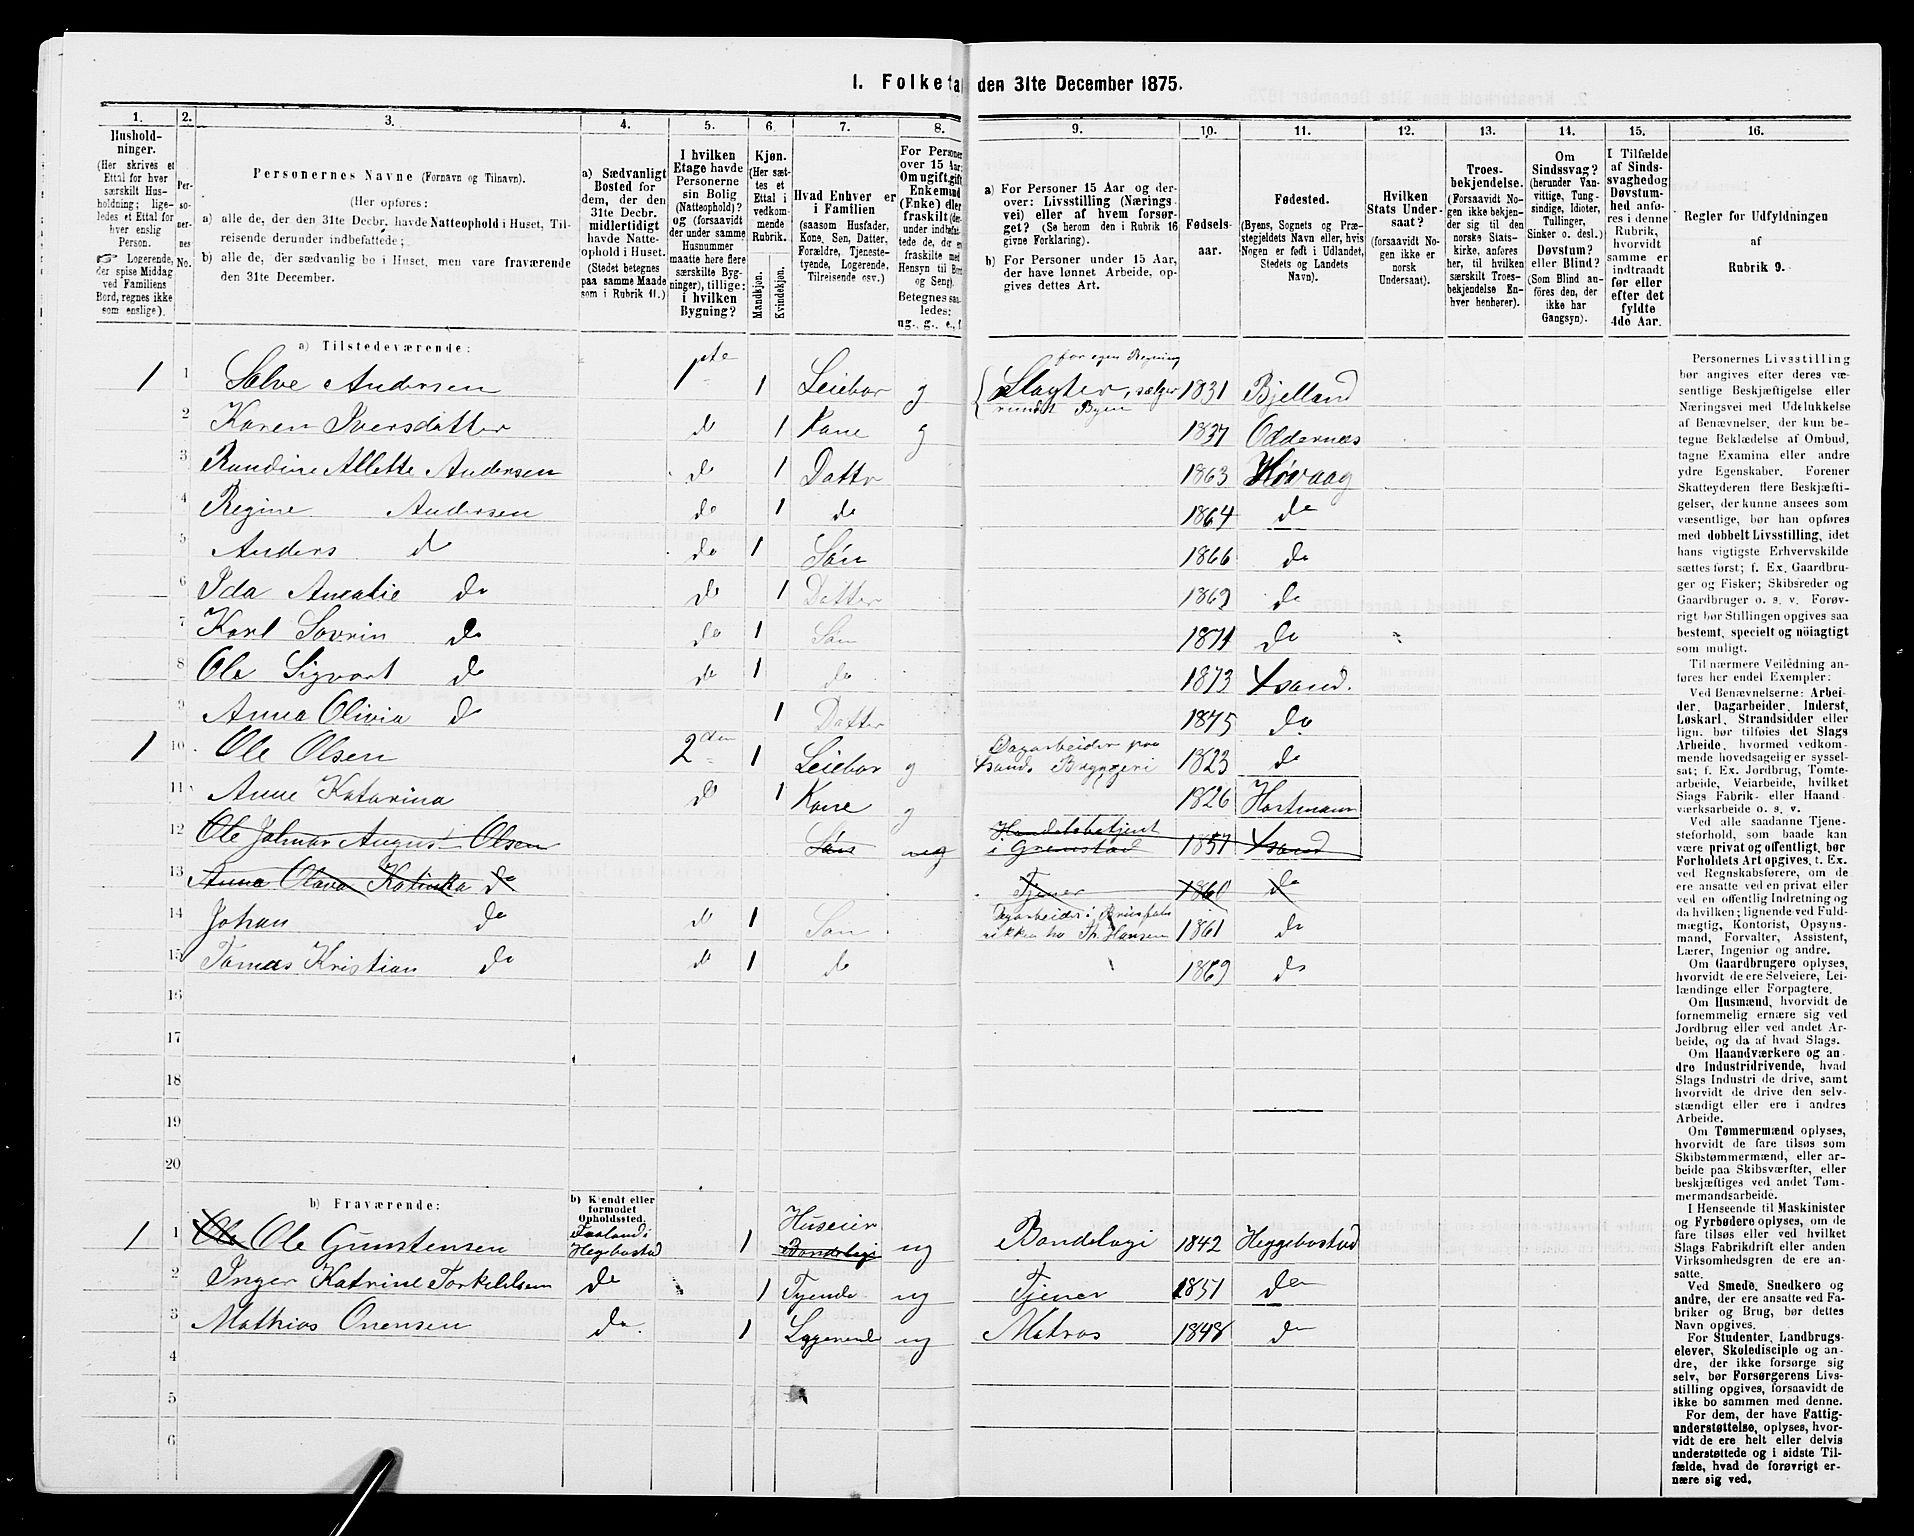 I. Folketa den 31te December 1875.
1. 2. 3. 4. 5. 6. 7. 8. 9. 10. 11. 12. 13. 14. 15. 16.
Hushold-
ninger.
(Her skrives et
Ettal for hver
særskilt Hus-
holdning; lige-
ledes et Ettal for
hver enslig
Person.
☞ Logerende,
der spise Middag
ved Familiens
Bord, regnes ikke
som enslige).
Per-
so-
ner-
nes
No.
Personernes Navne (Fornavn og Tilnavn).
(Her opføres:
a) alle de, der den 31te Decbr. havde Natteophold i Huset, Til-
reisende derunder indbefattede;
b) alle de, der sædvanlig bo i Huset, men vare fraværende
den 31te December.
a) Sædvanligt
Bosted for
dem, der den
31te Decbr.
midlertidigt
havde Natte-
ophold i Huset.
(Stedet betegnes
paa samme Maade
som i Rubrik 11.)
I hvilken
Etage havde
Personerne
sin Bolig
(Natteophold)?
og (forsaavidt
der under samme
Husnummer
maatte høre flere
særskilte Byg-
ninger), tillige:
i hvilken
Bygning?
Kjøn.
(Her sæt-
tes et
Ettal i
vedkom-
mende
Rubrik.
Mandkjøn.
Kvindekjøn.
Hvad Enhver er
i Familien
(saasom Husfader,
Kone, Søn, Datter,
Forældre, Tjeneste-
tyende, Logerende,
Tilreisende osv.)
For Personer
over 15 Aar:
Om ugift, gift,
Enkemand
(Enke) eller
fraskilt (der-
under indbefat-
tede de, der er
fraskilte med
Hensyn til Bord
og Seng).
Betegnes saa-
ledes:
ug., g., e., f.
a) For Personer 15 Aar og der-
over: Livsstilling (Nærings-
vei) eller af hvem forsør-
get? (Se herom den i Rubrik 16
givne Forklaring).
b) For Personer under 15 Aar,
der have lønnet Arbeide, op-
gives dettes Art.
Fødsels-
aar.
Fødested.
(Byens, Sognets og Præ-
stegjeldets Navn eller, hvis
Nogen er født i Udlandet,
Stedets og Landets
Navn).
Hvilken
Stats Under-
saat?
(forsaavidt No-
gen ikke er
norsk
Undersaat).
Troes-
bekjendelse.
(Forsaavidt No-
gen ikke bekjen-
der sig til den
norske Stats-
kirke, anføres
her, til hvilken
særskilt Troes-
bekjendelse En-
hver henhører).
Om
Sindssvag?
(herunder Van-
vittige, Tung-
sindige, Idioter,
Tullinger,
Sinker o. desl.)
Døvstum?
eller Blind?
(Som Blind an-
føres den, der
ikke har
Gangsyn).
I Tilfælde
af Sinds-
svaghed og
Døvstum-
hed anfø-
res i denne
Rubrik,
hvorvidt
samme er
indtraadt
før eller
efter det
fyldte
4de Aar.
Regler for Udfyldningen
af
Rubrik 9.
a) Tilstedeværende:
for egen Regning
1 1 Salve Andersen 1ste 1 Leiebor g Slagter, sælger 1831 Bjelland
rundt Byen
2 Karen Iversdatter do 1 Kone g 1837 Oddernes
3 Randine Allette Andersen do 1 Dattr 1863 Høvaag
4 Regine Andersen do 1 do 1864 do
5 Anders do do 1 Søn 1866 do
6 Ida Amalie do do 1 Datter 1869 do
7 Karl Sovrin do do 1 Søn 1871 do
8 Ole Sigvart do do 1 do 1873 Xsand.
9 Anna Olivia do 1 Datter 1875 do
1 10 Ole Olsen 2den 1 Leiebor g Dagarbeider paa 1823 do
Xsands Bryggeri
11 Anne Katarina do 1 Kone g 1826 Hartmann
12 Ole Jalmar August Olsen Søn ug Handelsbetjent 1857 Xsand
i Gremstad
13 Anna Olava Katinka do Tjener 1860 do
14 Johan do do 1 Søn Dagarbeider i 1861 do
Th. Hansen
15 Tomas Kristian do do 1 do 1869 do
16
17
18
19
20
b) Fraværende:
b) Kjendt eller
formodet
Opholdssted.
1 1 Ole Ole Gunstensen Faaland i 1 Huseier ug Bondelogi 1842 Heggebostad
Hegebostad Bondelogi
2 Inger Katrine Torkelsen do 1 Tyende ug Tjener 1851 do
3 Mathias Onensen do. 1 Logerende ug Matros 1848 do
4
5
6
Personernes Livsstilling
bør angives efter deres væ-
sentlige Beskjæftigelse eller
Næringsvei med Udelukkelse
af Benævnelser, der kun be-
tegne Beklædelse af Ombud,
tagne Examina eller andre
ydre Egenskaber. Forener
Skatteyderen flere Beskjæfti-
gelser, der kunne ansees som
væsentlige, bør han opføres
med dobbelt Livsstilling, idet
hans vigtigste Erhvervskilde
sættes først; f. Ex. Gaardbru-
ger og Fisker; Skibsreder og
Gaardbruger o. s. v. Forøv-
rigt bør Stillingen opgives saa
bestemt, specielt og nöiagtigt
som muligt.
Til nærmere Veiledning an-
føres her endel Exempler:
Ved Benævnelserne: Arbei-
der, Dagarbeider, Inderst,
Løskarl, Strandsidder eller
lign. bør tilføies det Slags
Arbeide, hvormed vedkom-
mende hovedsagelig er syssel-
sat; f. Ex. Jordbrug, Tomte-
arbeide, Veiarbeide, hvilket
Slags Fabrik- eller Haand-
værksarbeide o. s. v.
Ved alle saadanne Tjene-
steforhold, som baade kan
være privat og offentligt, bør
Forholdets Art opgives, t. Ex.
ved Regnskabsførere, om de
ere ansatte ved en privat eller
ved en offentlig Indretning og
da hvilken; lignende ved Fuld-
mægtig, Kontorist, Opsyns-
mand, Forvalter, Assistent,
Lærer, Ingeniør og andre.
Om Gaardbrugere oplyses,
hvorvidt de ere Selveiere, Lei-
lændinge eller Forpagtere.
Om Husmænd, hvorvidt de
fornemmelig ernære sig ved
Jordbrug eller ved andet Ar-
beide, og da af hvad Slags.
Om Haandværkere og an-
dre Industridrivende, hvad
Slags Industri de drive, samt
hvorvidt de drive den selv-
stændigt eller ere i andres
Arbeide.
Om Tømmermænd oplyses,
hvorvidt de fare tilsøs som
Skibstømmermænd, eller ar-
beide paa Skibsværfter, eller
beskjæftiges ved andet Tøm-
mermandsarbeide.
I Henseende til Maskinister
og Fyrbødere oplyses, om de
fare tilsøs eller ved hvilket
Slags Fabrikdrift eller anden
Virksomhedsgren de ere an-
satte.
Ved Smede, Snedkere og
andre, der ere ansatte ved Fa-
briker og Brug, bør dettes
Navn opgives.
For Studenter, Landbrugs-
elever, Skoledisciple og an-
dre, der ikke forsørge sig
selv, bør Forsørgerens Livs-
stilling opgives, forsaavidt de
ikke bo sammen med denne.
For dem, der have Fattig-
understøttelse, oplyses, hvor-
vidt de ere helt eller delvis
understøttede og i sidste Til-
fælde, hvad de forøvrigt er-
nære sig ved.